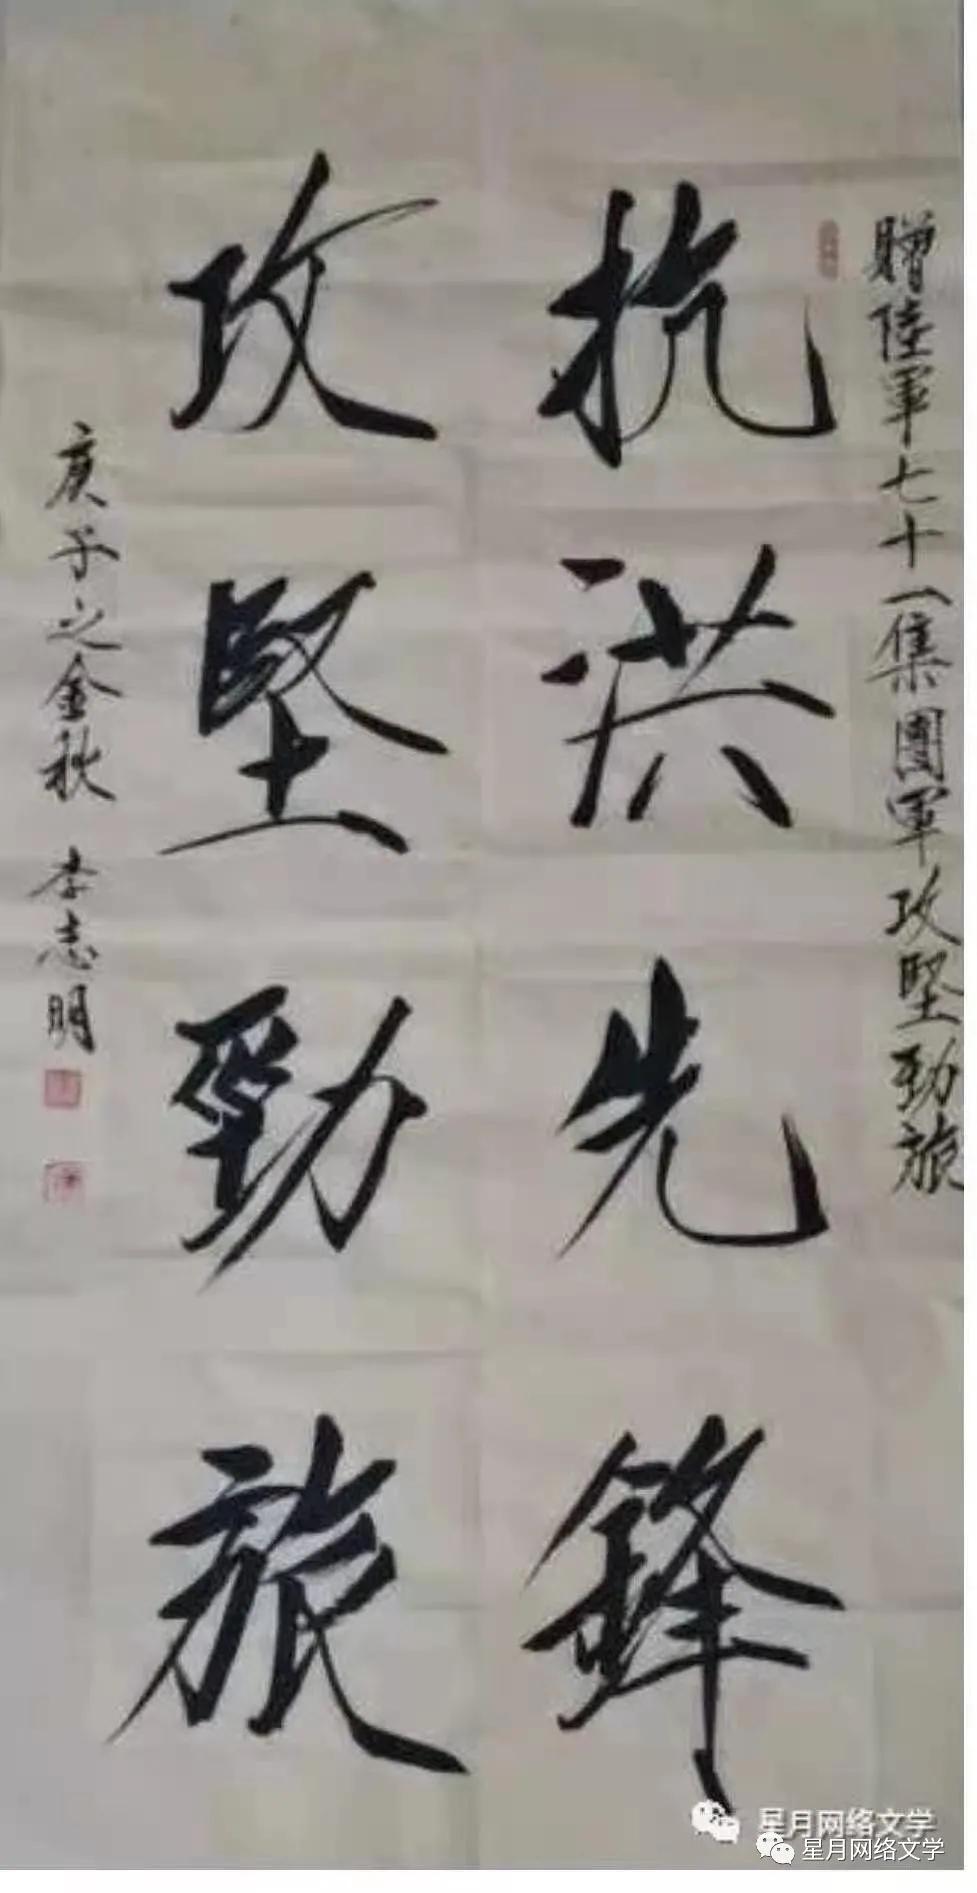 贈陸軍七十一集團軍攻堅勁旅
抗洪先鋒
攻堅勁旅
庚子之金秋 李志明
星月网络文学
星月网络文学